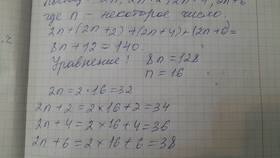 2n, 2n+2, 2n+4, 2n+6
где n - некоторое число.
2n+(2n+2)+(2n+4)+(2n+6)=
8n+12=140.
Уравнение: 8n=128
n=16
2n=2·16=32
2n+2=2×16+2=34
2n+4=2×16+4=36
2n+6=2×16+6=38